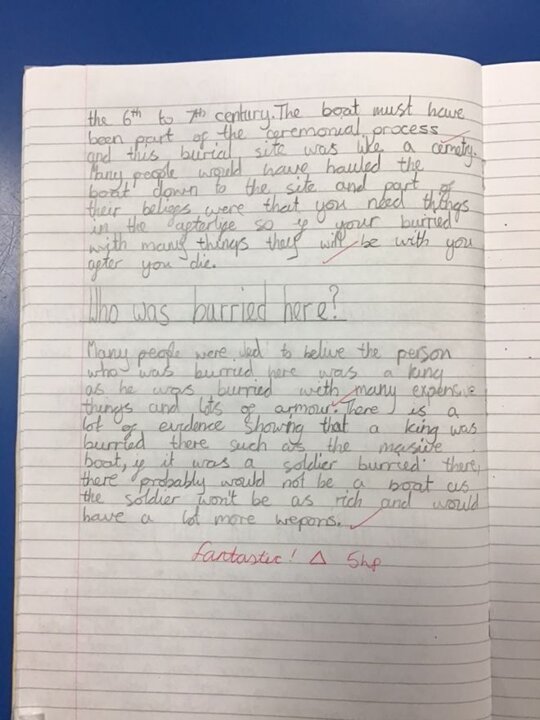 the 6th to 7th century. The boat must have
been part of the ceremonial process
and this burial site was like a cemetry.
Many people would have hauled the
boat down to the site and part of
their beliges were that you need things
in the afterlife so if your burried
with many things they will be with you
after you die.
Who was burried here?
Many people were led to belive the person
who was burried here was a king
as he was burried with many expensive
things and lots of armour. There is a
lot of evidence showing that a king was
burried there such as the massive
boat, if it was a soldier burried there,
there probably would not be a boat as
the soldier won't be as rich and would
have a lot more wepons.
fantastic! △ 5hp